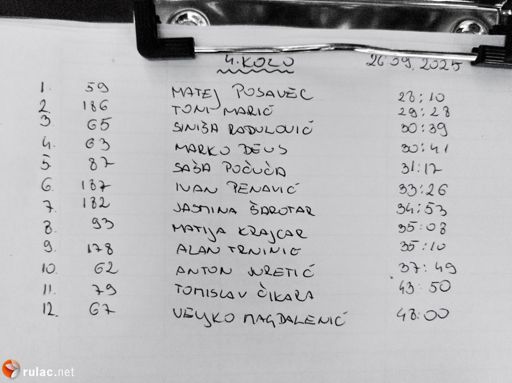 4. KOLO 26.09.2025
1. 59 MATEJ POSAVEC 28:10
2 186 TONI MARIĆ 29:28
3 65 SINIŠA RADULOVIĆ 30:39
4. 63 MARKO DEUS 30:41
5. 87 SAŠA POČUČA 31:17
6. 187 IVAN PENAVIĆ 33:26
7. 182 JASMINA ŠAROTAR 34:53
8. 93 MATIJA KRAJCAR 35:08
9. 178 ALAN TRNINIC 35:10
10. 62 ANTON JURETIĆ 37:49
11. 79 TOMISLAV ČIKARA 43:50
12. 67 VELJKO MAGDALENIĆ 48:00
rulac.net